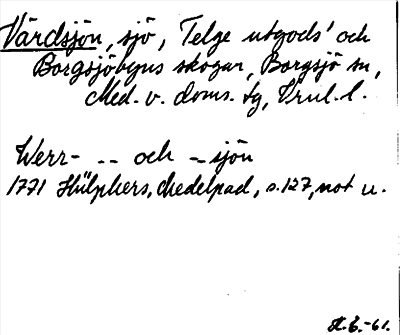 Värdsjön, sjö, Telge utgods' och
Borgsjöbyns skogar, Borgsjö sn,
Med. v. doms. tg, Vrnl. l.
Werr- -- och -- sjön
1771 Hülphers, Medelpad, s. 127, not u.
H.E.-61.